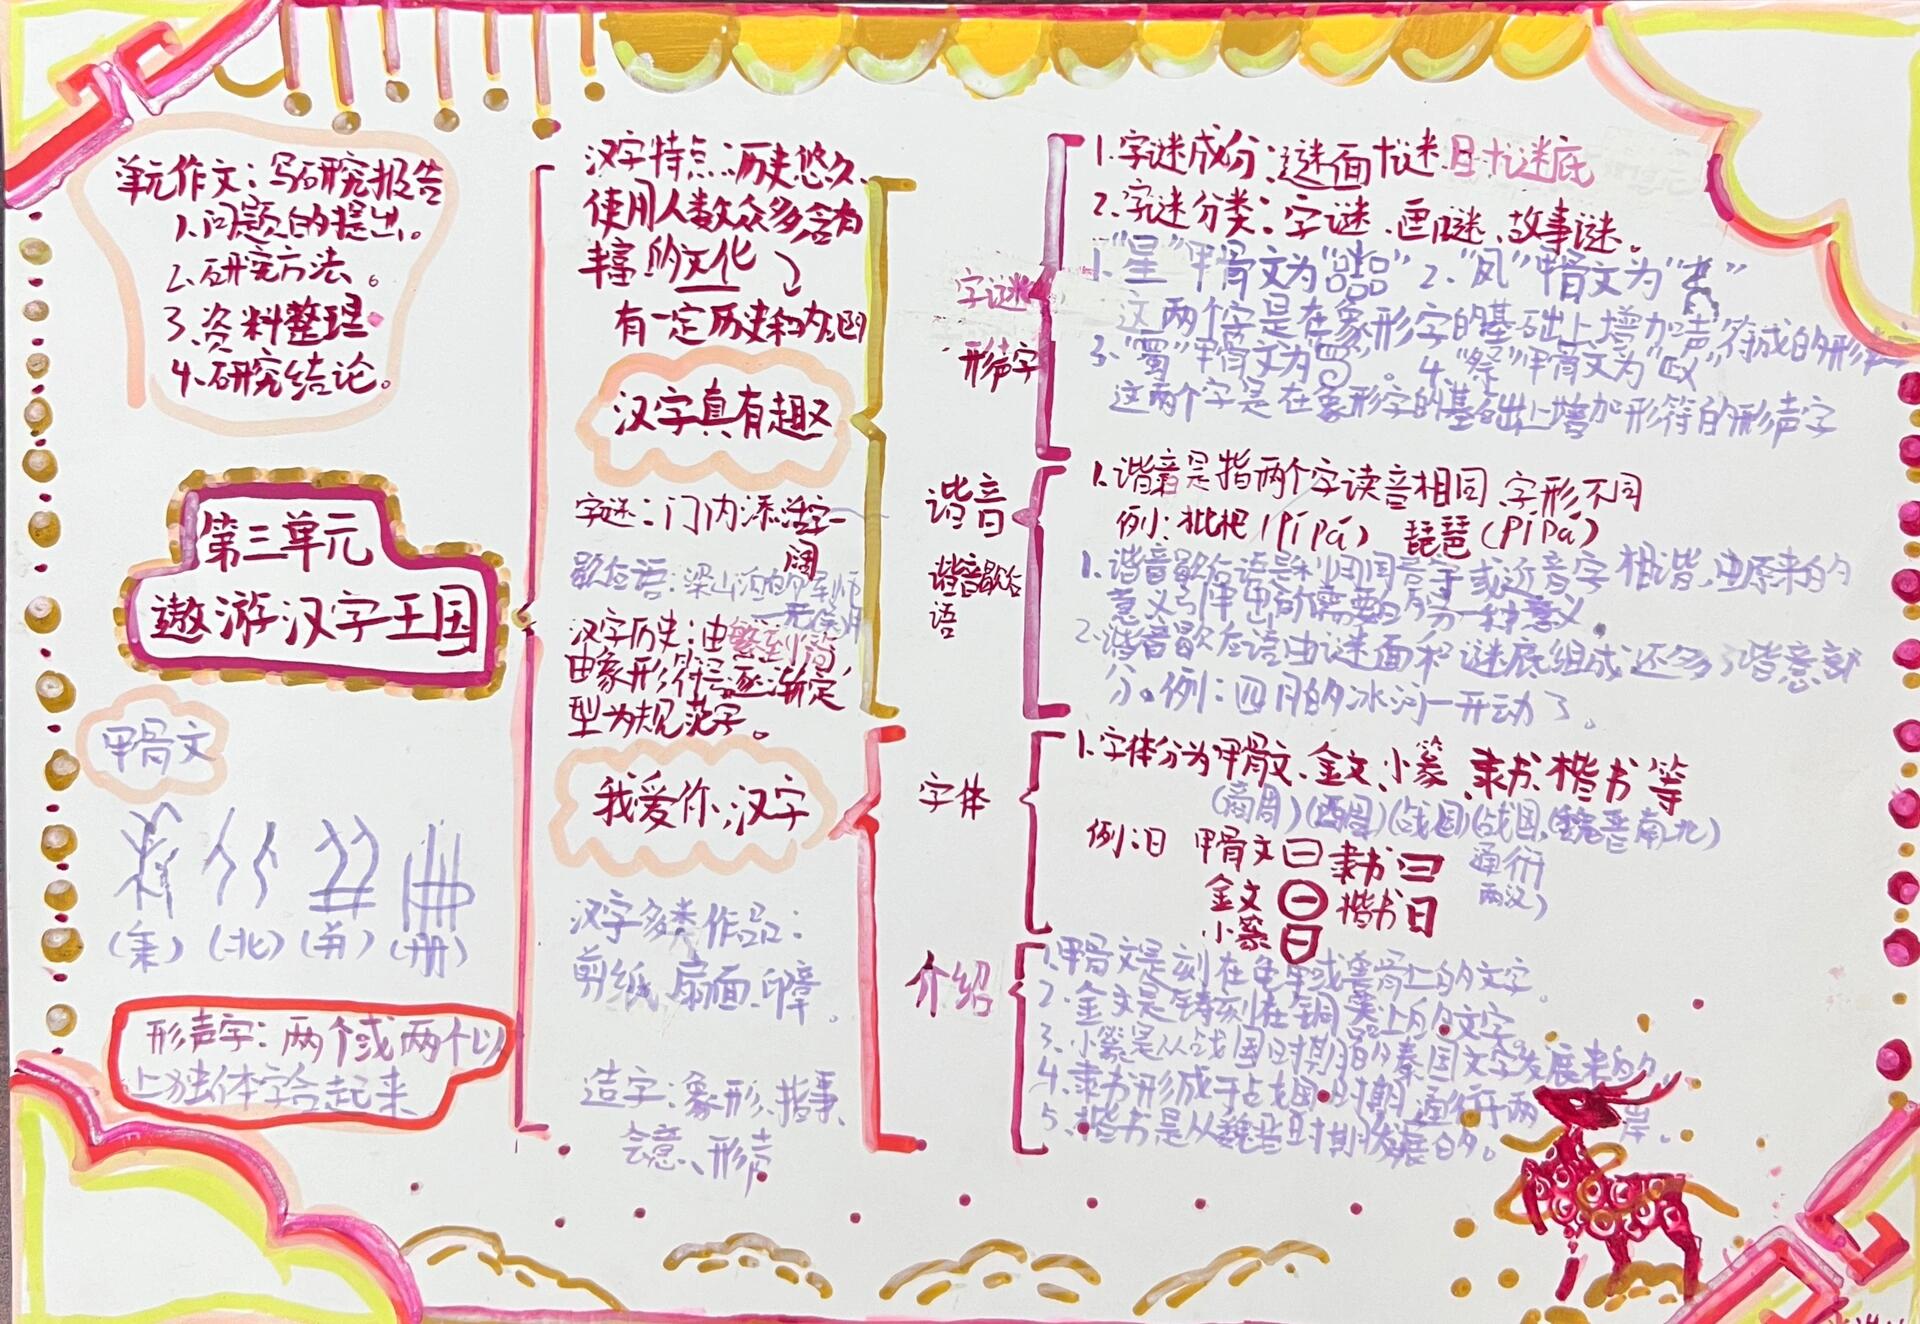 单元作文：写研究报告
1.问题的提出。
2.研究方法。
3.资料整理
4.研究结论。
第三单元
遨游汉字王国
甲骨文
(北) (册)
形声字：两个或两个以
上独体字合起来
汉字特点：历史悠久、
使用人数众多、含有
丰富的文化
有一定历史和
汉字真有趣
字谜：门内添活字一
阔
歇后语：梁山泊的军师
无
汉字历史：由繁到简
由象形符号逐渐定
型为规范字。
我爱你，汉字
汉字多类作品：
剪纸、扇面、印章。
造字：象形、指事、
会意、形声
字谜
形声字
1.字谜成分：谜面 谜目 谜底
2.字谜分类：字谜、画谜、故事谜。
1."星"甲骨文为 2."凤"甲骨文为
这两个字是在象形字的基础上增加声符成的形
3. 甲骨文为 。 4."祭"甲骨文为
这两个字是在象形字的基础上增加形符的形声字
谐音
谐音歇后
语
1.谐音是指两个字读音相同、字形不同
例：枇杷(pípá) 琵琶(pípá)
1.谐音歇后语是利用同音字或近音字相谐，由原来的
意义引伸出所需要的另一种意义
2.谐音歇后语由谜面和谜底组成还多了谐意部
分。例：四月的冰河—开动了。
字体
1.字体分为甲骨文、金文、小篆、隶书、楷书等
(商周)(西周)(战国)(战国,(魏晋南北)
通行
两汉)
例：日 甲骨文 隶书
金文 楷书日
小篆
介绍
1.甲骨文是刻在龟甲或兽骨上的文字。
2.金文是铸刻在铜类上的文字。
3.小篆是从战国时期的秦国文字发展来的。
4.隶书形成于战国时期 通行于两 岸。
5.楷书是从魏晋时期发展的。